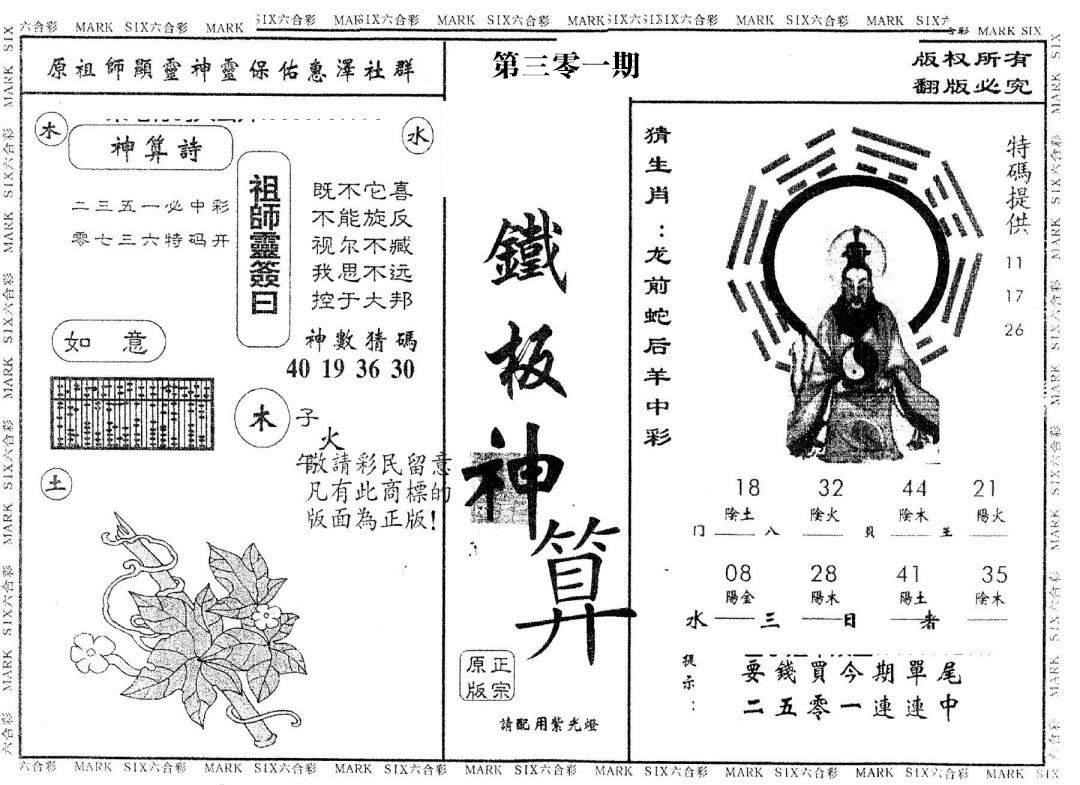 六合彩 MARK SIX六合彩 MARK SIX六合彩 MARK SIX六合彩 MARK SIX六合彩 MARK SIX六合彩 MARK SIX六合彩 MARK SIX
原祖師顯靈神靈保佑惠澤社群
第三零一期
版权所有
翻版必究
木
神算詩
水
二三五一必中彩
零七三六特码开
祖師靈簽曰
既不它喜
不能旋反
视尔不臧
我思不远
控于大邦
神數猜碼
40 19 36 30
如意
木
子
火
午
敬請彩民留意
凡有此商標的
版面為正版!
土
鐵板神算
正宗
原版
請配用紫光燈
猜生肖:龙前蛇后羊中彩
特碼提供
11
17
26
18 32 44 21
陰土 陰火 陰木 陽火
门 八 貝
08 28 41 35
陽金 陽木 陽土 陰木
水 三 日 者
提示:
要錢買今期單尾
二五零一連連中
六合彩 MARK SIX六合彩 MARK SIX六合彩 MARK SIX六合彩 MARK SIX六合彩 MARK SIX六合彩 MARK SIX六合彩 MARK SIX六合彩 MARK SIX